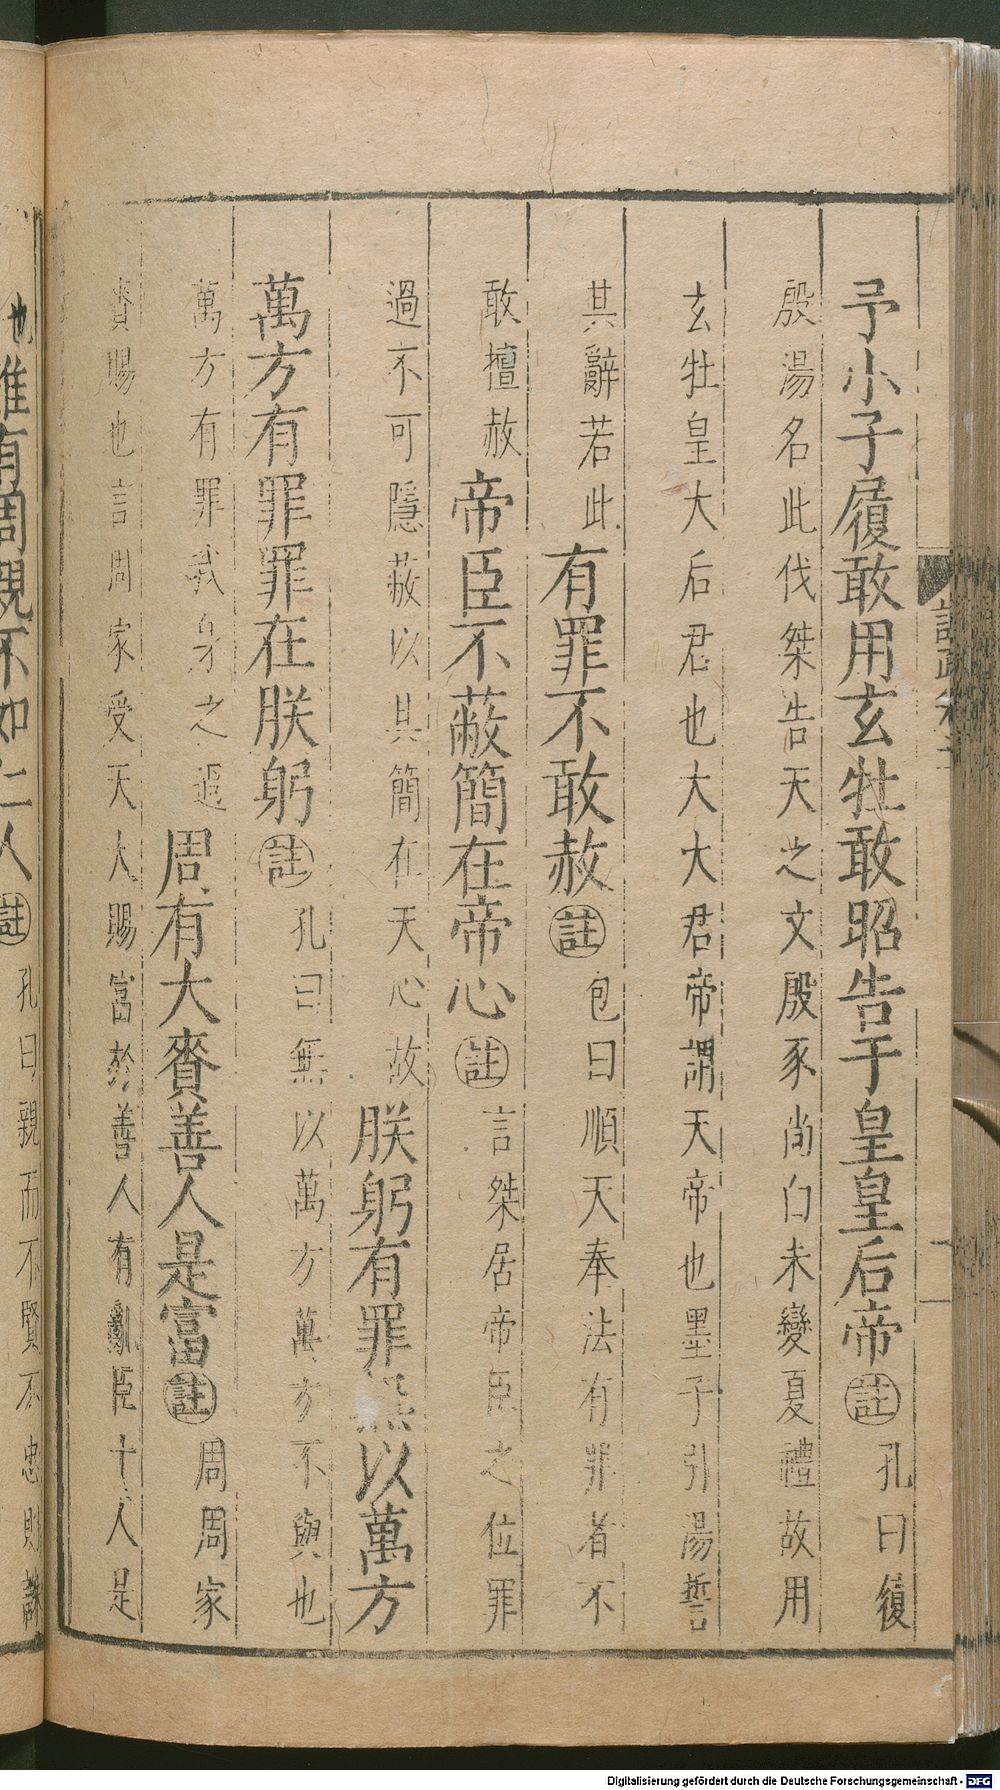 予小子履敢用玄牡敢昭告于皇皇后帝註孔曰履
殷湯名此伐桀告天之文殷豕尚白未變夏禮故用
玄牡皇大后君也大大君帝謂天帝也墨子引湯誓
其辭若此有罪不敢赦註包曰順天奉法有罪者不
敢擅赦帝臣不蔽簡在帝心註言桀居帝臣之位罪
過不可隱蔽以其簡在天心故朕躬有罪無以萬方
萬方有罪罪在朕躬註孔曰無以萬方萬方不與也
萬方有罪我身之過周有大賚善人是富註周周家
賚賜也言周家受天大賜富於善人有亂臣十人是
也雖有周親不如仁人註孔曰親而不賢不忠則誅
Digitalisierung gefördert durch die Deutsche Forschungsgemeinschaft - DFG